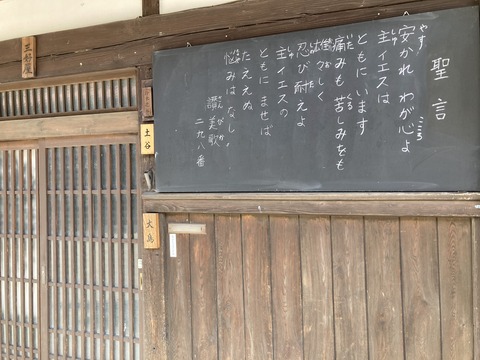 三好屋
土谷
大鳥
聖言
やす こころ
安かれ わが心よ
しゅ
主イエスは
ともにいます
いた くる
痛みも 苦しみをも
雄々しく
しの た
忍び耐えよ
しゅ
主イエスの
ともに ませば
たええぬ
なや
悩みはなし
さんびか
讃美歌
二九八番